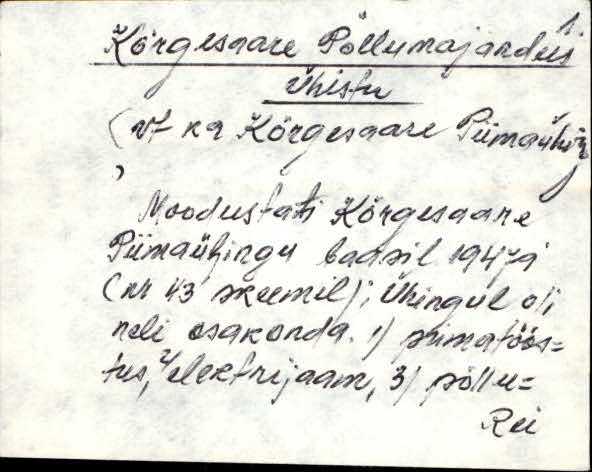 1.
Kõrgesaare Põllumajandus
Ühistu
(vt ka Kõrgesaare Piimaühing
)
Moodustati Kõrgesaare
Piimaühingu baasil 1947 a
(nr 43 skeemil); Ühingul oli
neli osakonda. 1) piimatöös=
tus, 2) elektrijaam, 3) põllu=